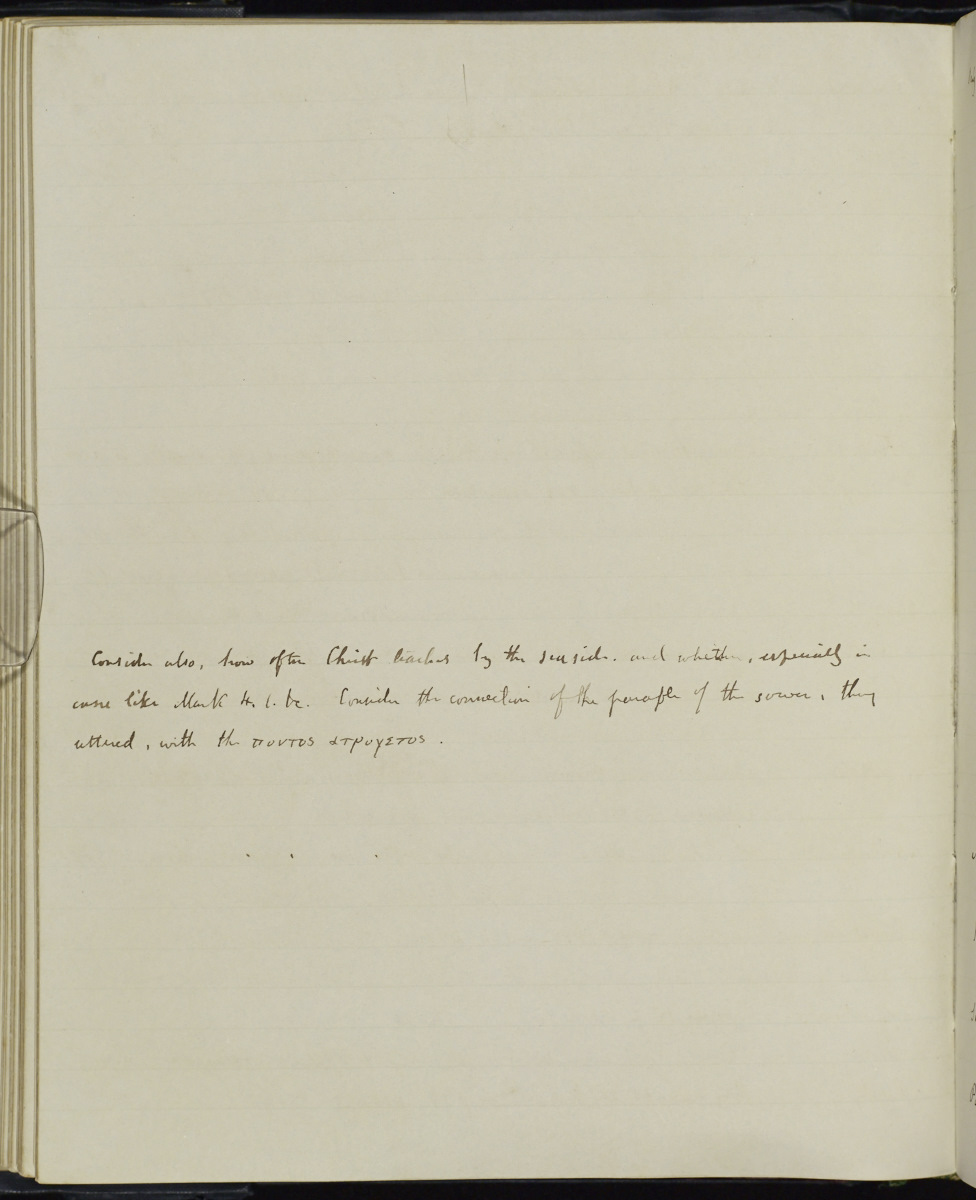 Consider also, how often Christ teaches by the seaside. and whether, especially in
case like Mark 4. 1. &c. Consider the connection of the parable of the sower, thus
uttered, with the ποντος ατρυγετος.